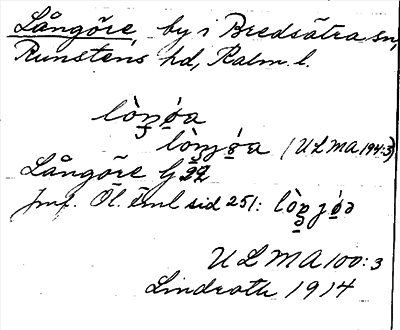 Långöre by i Bredsätra sn,
Runstens hd, Kalm. l.
lòn̥ǫ́a
lònȷǫ́a (ULMA 194:3)
Långöre G 22
jmf. Öl. Eml sid 251: lòn̥ȷǫ́ə
ULMA 100:3
Lindroth 1914